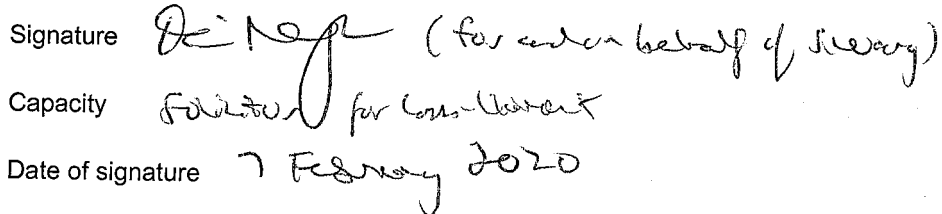 Signature (for and on behalf of
Capacity Solicitor for
Date of signature 7 February 2020